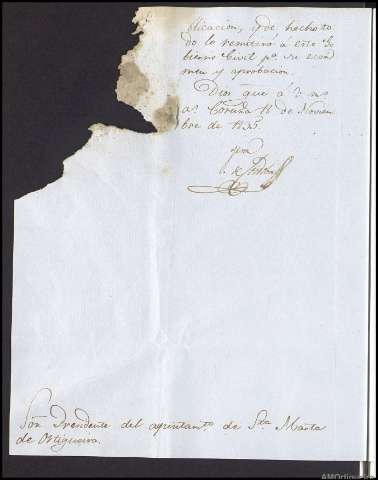 blicacion, y de hecho to
do lo remitirá á este Go
bierno Civil pª. su exa
men y aprobacion.
Dios gue á V. ms
as Coruña 18 de Noviem
bre de 1835.
Sor. Presidente del ayuntamto. de Sta. Marta
de Ortigueira.